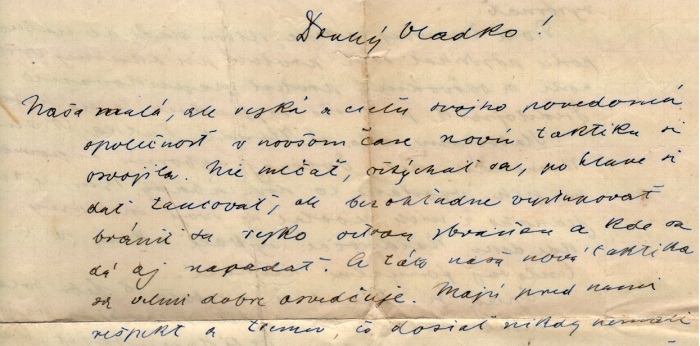 Drahý Vladko!
Naša malá, ale rýzka a cieľu svojho povedomá
spoločnosť v novšom čase novú taktiku si
osvojila. Nie mlčať, ostýchať sa, po hlave si
dať tancovať, ale bezohľadne vystupovať
brániť sa ostrou zbraňou a kde sa
dá aj napadať. A táto naša nová taktika
sa velmi dobre osvedčuje. Majú pred nami
rešpekt a tremu, čo dosiaľ nikdy nemali